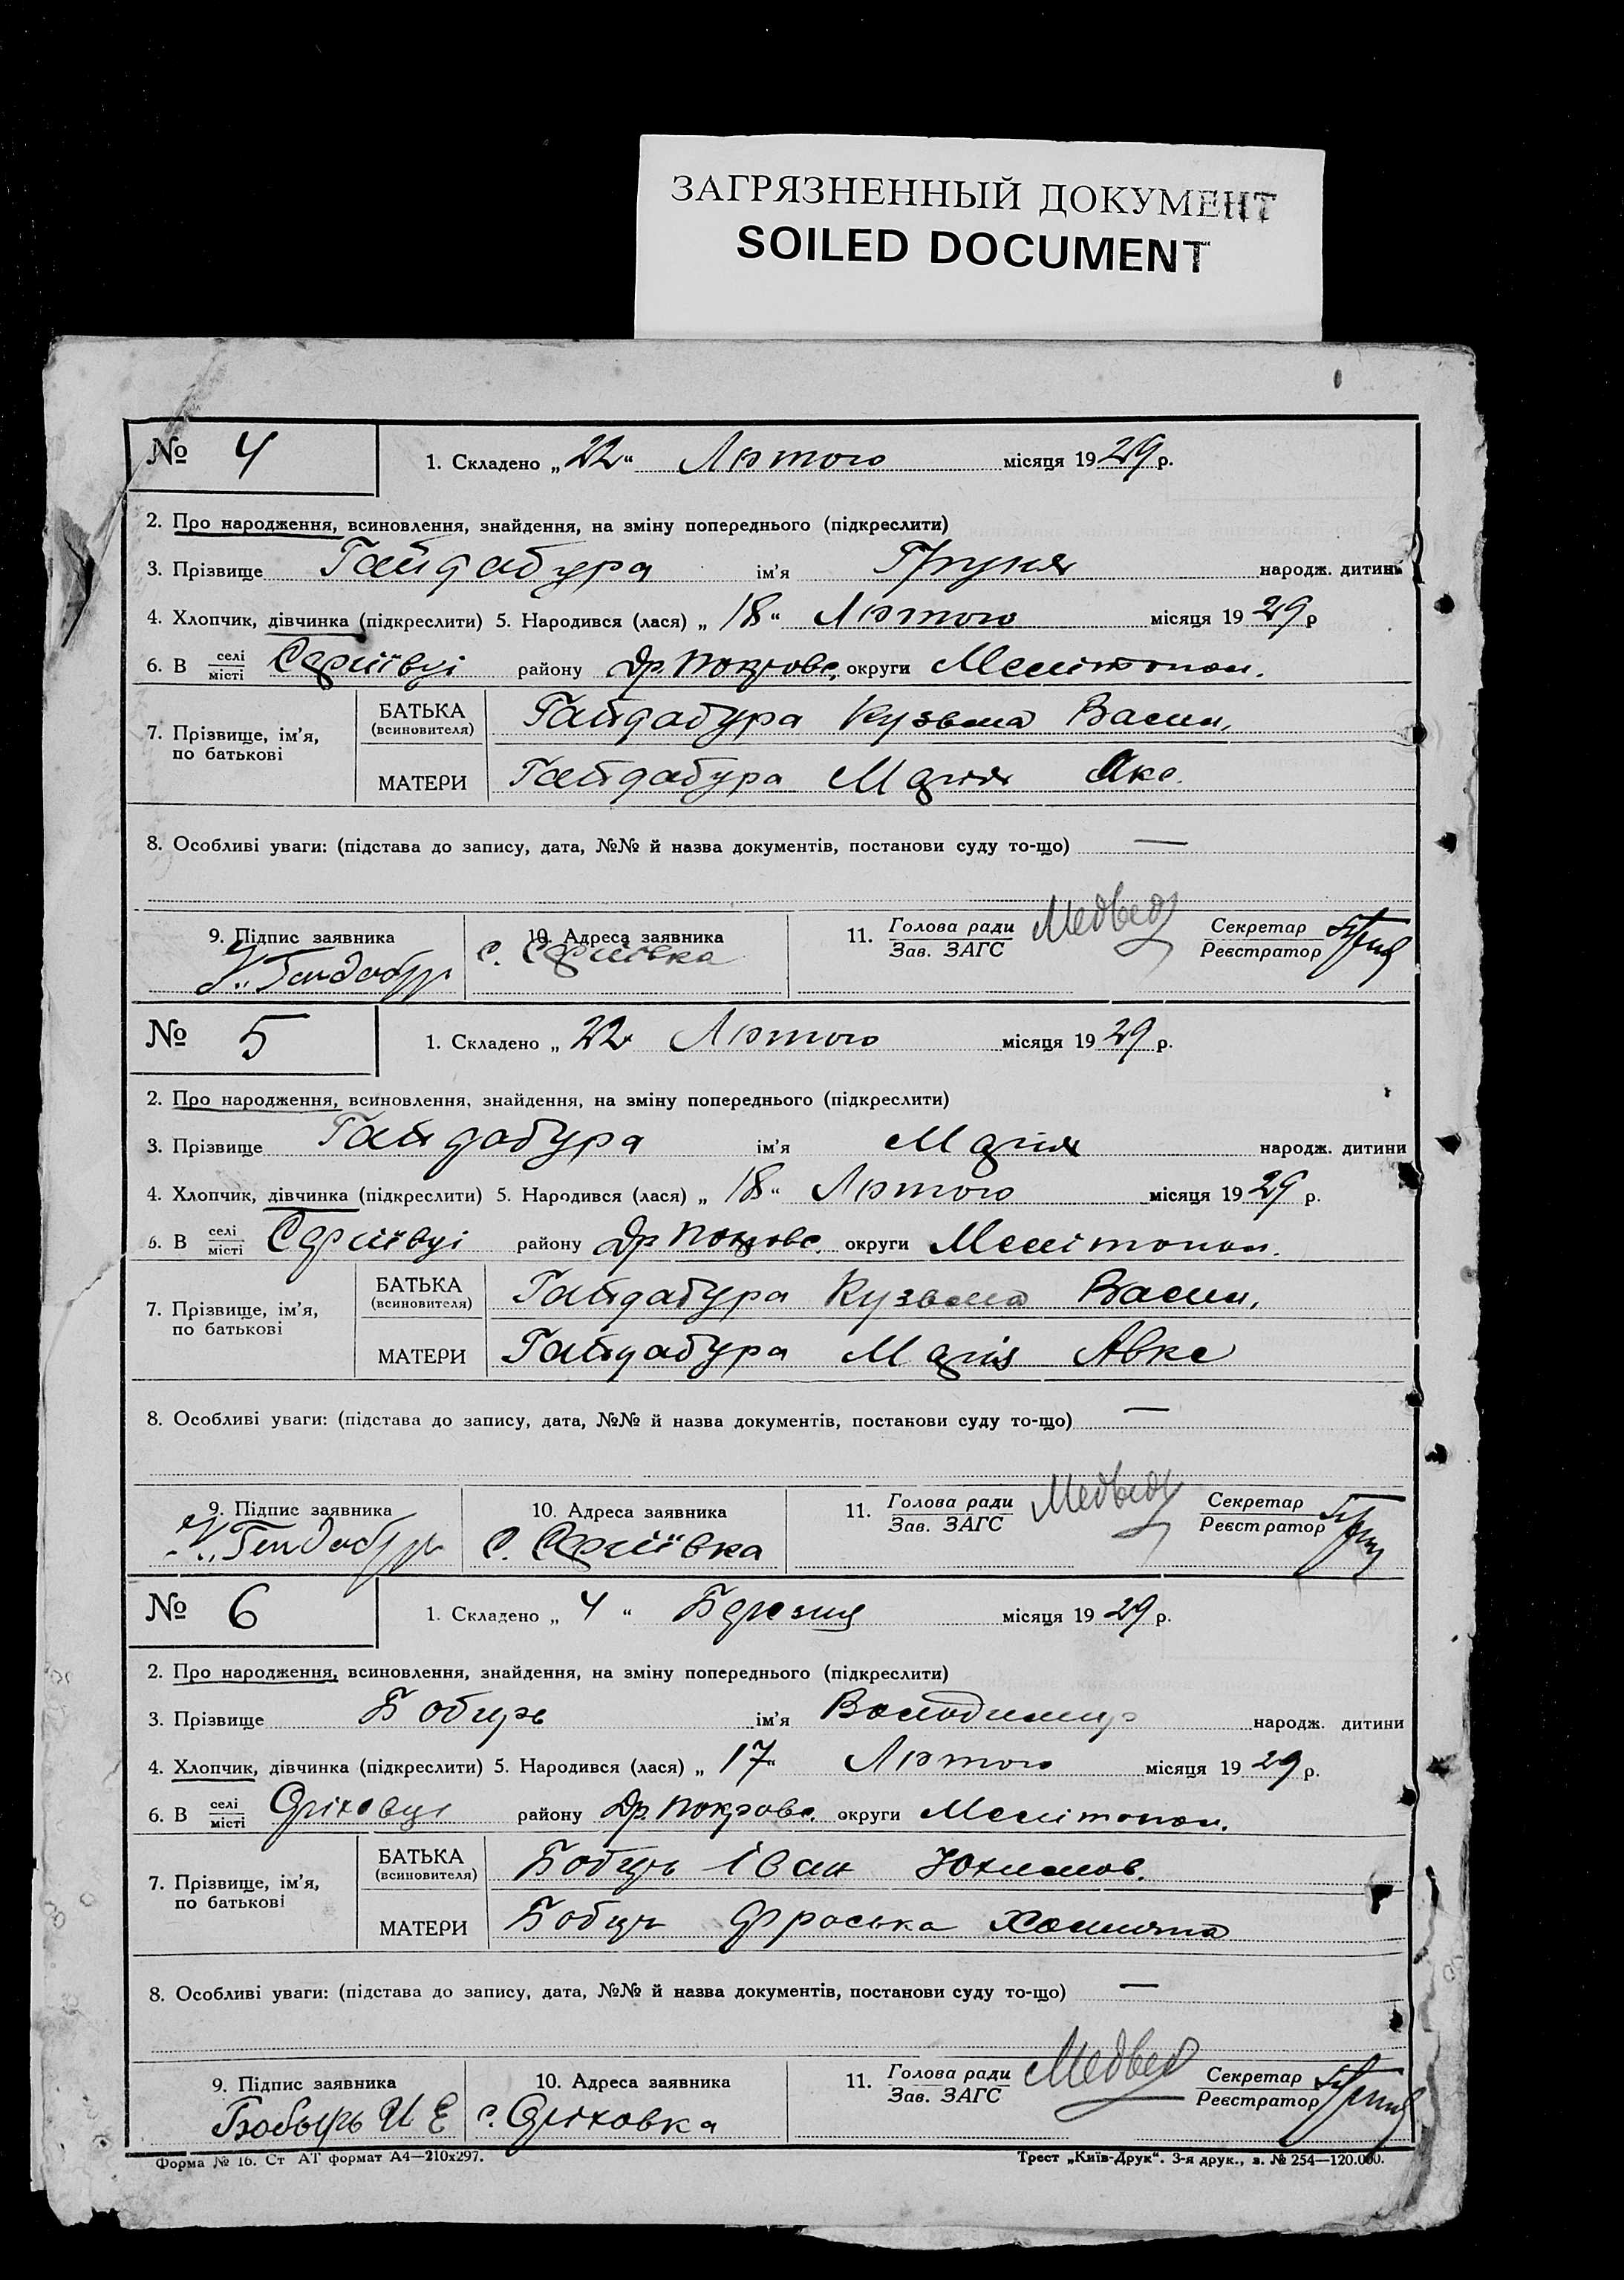 ЗАГРЯЗНЕННЫЙ ДОКУМЕНТ
SOILED DOCUMENT
№ 4
1. Складено „22“ Лютого місяця 1929 р.
2. Про народження, всиновлення, знайдення, на зміну попереднього (підкреслити)
3. Прізвище Гайдабура ім'я Груня народж. дитини
4. Хлопчик, дівчинка (підкреслити) 5. Народився (лася) „18“ Лютого місяця 1929 р
6. В селі місті Сергіївці району Др. Покровс. округи Мелітопол.
7. Прізвище, ім'я, по батькові
БАТЬКА (всиновителя) Гайдабура Кузьма Васил.
МАТЕРИ Гайдабура Марія Акс.
8. Особливі уваги: (підстава до запису, дата, №№ й назва документів, постанови суду то-що) —
9. Підпис заявника 10. Адреса заявника 11. Голова ради Зав. ЗАГС Медведь Секретар Реєстратор
с. Сергіївка
№ 5
1. Складено „22“ Лютого місяця 1929 р.
2. Про народження, всиновлення, знайдення, на зміну попереднього (підкреслити)
3. Прізвище Гайдабура ім'я Марія народж. дитини
4. Хлопчик, дівчинка (підкреслити) 5. Народився (лася) „18“ Лютого місяця 1929 р.
6. В селі місті Сергіївці району Др Покровс. округи Мелітопол.
7. Прізвище, ім'я, по батькові
БАТЬКА (всиновителя) Гайдабура Кузьма Васил.
МАТЕРИ Гайдабура Марія Авкс
8. Особливі уваги: (підстава до запису, дата, №№ й назва документів, постанови суду то-що) —
9. Підпис заявника 10. Адреса заявника 11. Голова ради Зав. ЗАГС Медведь Секретар Реєстратор
с. Сергіївка
№ 6
1. Складено „4“ Березня місяця 1929 р.
2. Про народження, всиновлення, знайдення, на зміну попереднього (підкреслити)
3. Прізвище Бобирь ім'я Володимир народж. дитини
4. Хлопчик, дівчинка (підкреслити) 5. Народився (лася) „17“ Лютого місяця 1929 р.
6. В селі місті Оріховці району Др. Покровс. округи Мелітопол.
7. Прізвище, ім'я, по батькові
БАТЬКА (всиновителя) Бобирь Іван Юхимов.
МАТЕРИ Бобирь Фроська Хомична
8. Особливі уваги: (підстава до запису, дата, №№ й назва документів, постанови суду то-що) —
9. Підпис заявника 10. Адреса заявника 11. Голова ради Зав. ЗАГС Медведь Секретар Реєстратор
Бобырь И Е с. Оріховка
Форма № 16. Ст АТ формат А4—210x297. Трест „Київ-Друк“. 3-я друк., з. № 254—120.000.